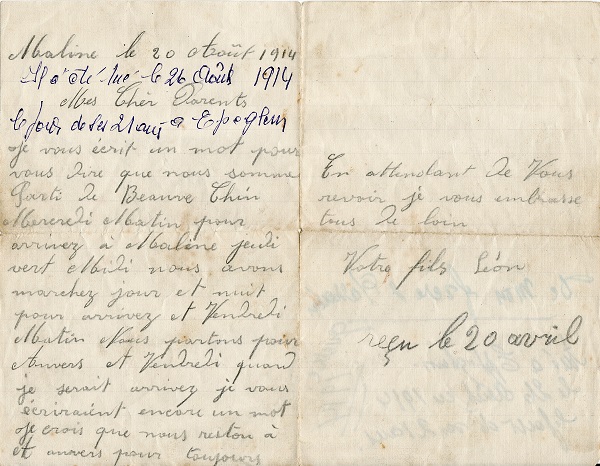 Maline le 20 Août 1914
Il a été tué le 26 Août 1914
Mes Chèr Parents
le jour de ses 21 ans a Epoghem
Je vous écrit un mot pour
vous dire que nous somme
Parti de Beauve Chin
Mercredi Matin pour
arrivez à Maline jeudi
vert Midi nous avons
marchez jour et nuit
pour arrivez et Vendredi
Matin Nous partons pour
Anvers et Vendredi quand
je serait arrivez je vous
écriraient encore un mot
Je crois que nous reston à
et anvers pour toujours
En attendant de Vous
revoir je vous embrasse
tous de loin
Votre fils Léon
reçu le 20 avril